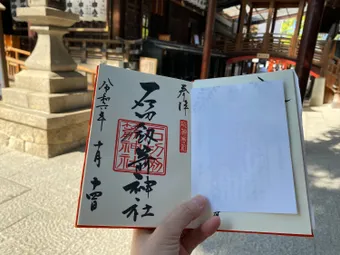 奉拝
石切劔箭神社
令和六年十月十四日